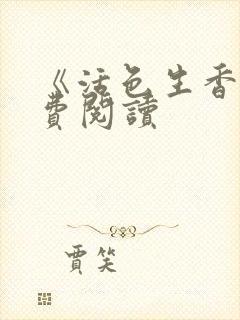 《活色生香
費閱讀
賈笑